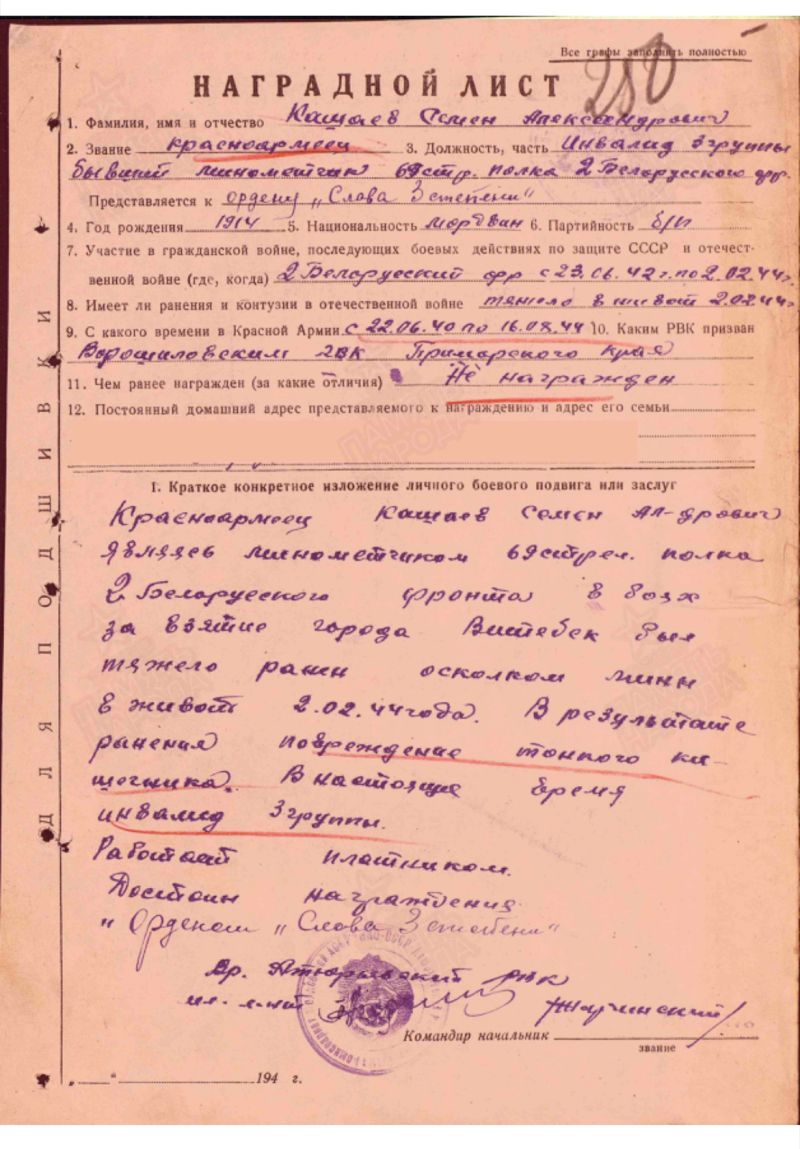 Все графы заполнять полностью
250
НАГРАДНОЙ ЛИСТ
1. Фамилия, имя и отчество Кашаев Семен Александрович
2. Звание красноармеец 3. Должность, часть Инвалид 3 группы
бывший минометчик 69 стр. полка 2 Белорусского фр.
Представляется к ордену „Слава 3 степени"
4. Год рождения 1914 5. Национальность мордвин 6. Партийность б/п
7. Участие в гражданской войне, последующих боевых действиях по защите СССР и отечест-
венной войне (где, когда) 2 Белорусский фр с 23.06.42 г. по 2.02.44 г.
8. Имеет ли ранения и контузии в отечественной войне тяжело в живот 2.02.44 г.
9. С какого времени в Красной Армии с 22.06.40 по 16.08.44 10. Каким РВК призван
Ворошиловским РВК Приморского края
11. Чем ранее награжден (за какие отличия) Не награжден
12. Постоянный домашний адрес представляемого к награждению и адрес его семьи
I. Краткое конкретное изложение личного боевого подвига или заслуг
Красноармеец Кашаев Семен Ал-дрович
являясь минометчиком 69 стрел. полка
2 Белорусского фронта в боях
за взятие города Витебск был
тяжело ранен осколком мины
в живот 2.02.44 года. В результате
ранения повреждение тонкого ки-
шечника. В настоящее время
инвалид 3 группы.
Работает плотником.
Достоин награждения
" Орденом „Слава 3 степени"
Атюрьевский РВК
Командир начальник
звание
„ " 194 г.
ДЛЯ ПОДШИВКИ